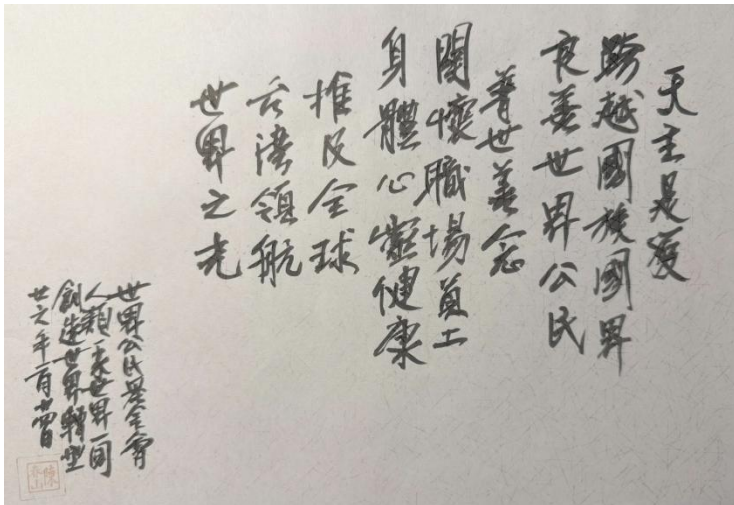 天主是愛
跨越國族國界
良善世界公民
普世善念
關懷職場員工
身體心靈健康
推及全球
台灣領航
世界之光
世界公民基金會
人類一家世界一同
創造世界轉型
廿六年一月廿四日